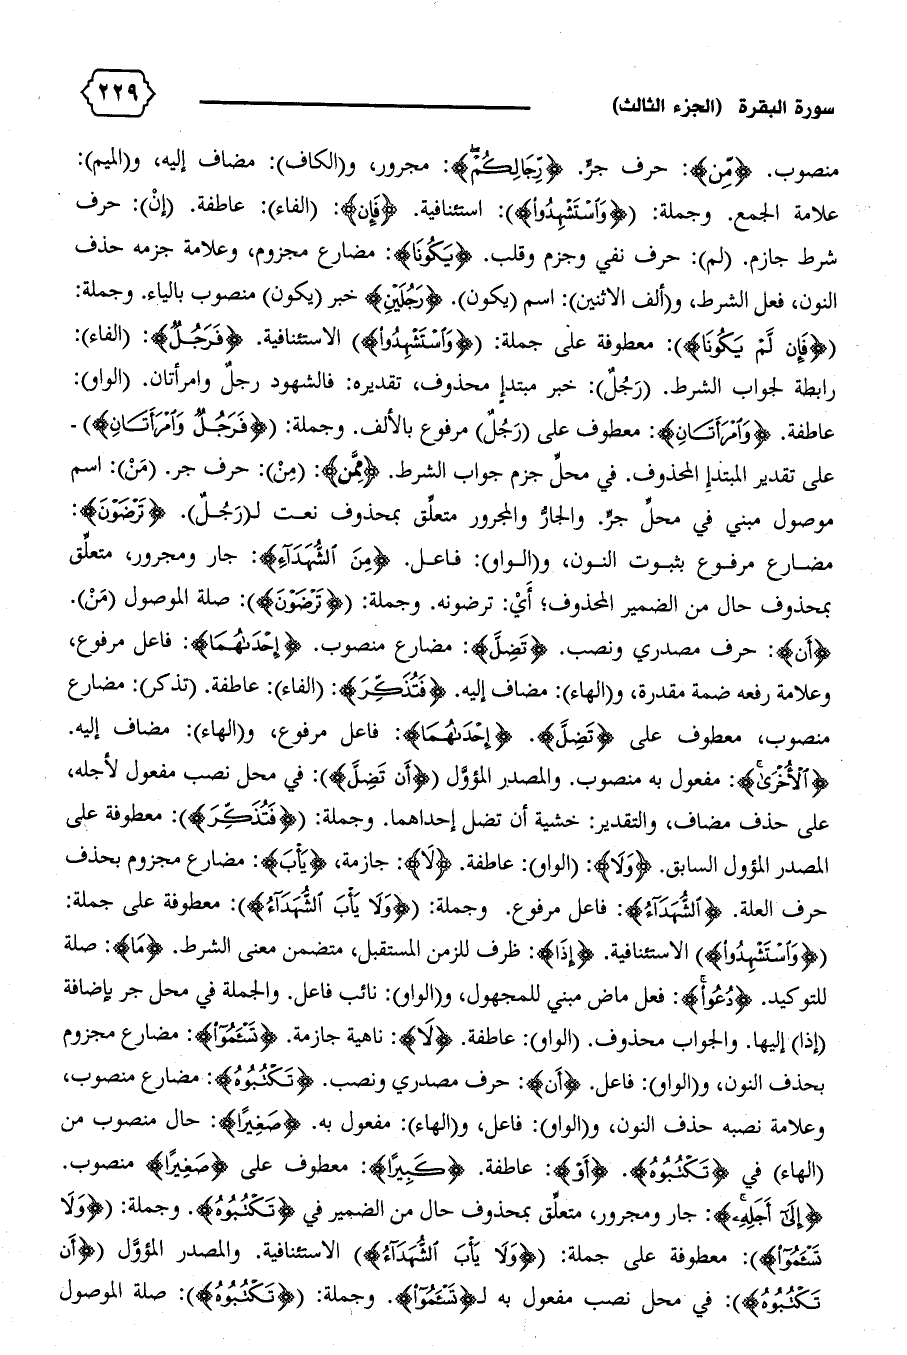 سورة البقرة (الجزء الثالث)
٢٢٩
منصوب. ﴿مِّن﴾: حرف جرٍّ. ﴿رِّجَالِكُمْ ۖ﴾: مجرور، و(الكاف): مضاف إليه، و(الميم):
علامة الجمع. وجملة: (﴿وَٱسْتَشْهِدُوا۟﴾): استئنافية. ﴿فَإِن﴾: (الفاء): عاطفة. (إنْ): حرف
شرط جازم. (لم): حرف نفي وجزم وقلب. ﴿يَكُونَا﴾: مضارع مجزوم، وعلامة جزمه حذف
النون، فعل الشرط، و(ألف الاثنين): اسم (يكون). ﴿رَجُلَيْنِ﴾ خبر (يكون) منصوب بالياء. وجملة:
(﴿فَإِن لَّمْ يَكُونَا﴾): معطوفة على جملة: (﴿وَٱسْتَشْهِدُوا۟﴾) الاستئنافية. ﴿فَرَجُلٌ﴾: (الفاء):
رابطة لجواب الشرط. (رَجُلٌ): خبر مبتدإ محذوف، تقديره: فالشهود رجلٌ وامرأتان. (الواو):
عاطفة. ﴿وَٱمْرَأَتَانِ﴾: معطوف على (رَجُل) مرفوع بالألف. وجملة: (﴿فَرَجُلٌ وَٱمْرَأَتَانِ﴾) -
على تقدير المبتدإ المحذوف. في محلِّ جزم جواب الشرط. ﴿مِمَّن﴾: (مِنْ): حرف جر. (مَنْ): اسم
موصول مبني في محلِّ جرٍّ. والجارُّ والمجرور متعلِّق بمحذوف نعت لـ(رَجُلٌ). ﴿تَرْضَوْنَ﴾:
مضارع مرفوع بثبوت النون، و(الواو): فاعل. ﴿مِنَ ٱلشُّهَدَآءِ﴾: جار ومجرور، متعلِّق
بمحذوف حال من الضمير المحذوف؛ أَيْ: ترضونه. وجملة: (﴿تَرْضَوْنَ﴾): صلة الموصول (مَنْ).
﴿أَن﴾: حرف مصدري ونصب. ﴿تَضِلَّ﴾: مضارع منصوب. ﴿إِحْدَىٰهُمَا﴾: فاعل مرفوع،
وعلامة رفعه ضمة مقدرة، و(الهاء): مضاف إليه. ﴿فَتُذَكِّرَ﴾: (الفاء): عاطفة. (تذكر): مضارع
منصوب، معطوف على ﴿تَضِلَّ﴾. ﴿إِحْدَىٰهُمَا﴾: فاعل مرفوع، و(الهاء): مضاف إليه.
﴿ٱلْأُخْرَىٰ ۚ﴾: مفعول به منصوب. والمصدر المؤوَّل (﴿أَن تَضِلَّ﴾): في محل نصب مفعول لأجله،
على حذف مضاف، والتقدير: خشية أن تضل إحداهما. وجملة: (﴿فَتُذَكِّرَ﴾): معطوفة على
المصدر المؤول السابق. ﴿وَلَا﴾: (الواو): عاطفة. ﴿لَا﴾: جازمة، ﴿يَأْبَ﴾: مضارع مجزوم بحذف
حرف العلة. ﴿ٱلشُّهَدَآءُ﴾: فاعل مرفوع. وجملة: (﴿وَلَا يَأْبَ ٱلشُّهَدَآءُ﴾): معطوفة على جملة:
(﴿وَٱسْتَشْهِدُوا۟﴾) الاستئنافية. ﴿إِذَا﴾: ظرف للزمن المستقبل، متضمن معنى الشرط. ﴿مَا﴾: صلة
للتوكيد. ﴿دُعُوا۟ ۚ﴾: فعل ماض مبني للمجهول، و(الواو): نائب فاعل. والجملة في محل جر بإضافة
(إذا) إليها. والجواب محذوف. (الواو): عاطفة. ﴿لَا﴾: ناهية جازمة. ﴿تَسْـَٔمُوٓا۟﴾: مضارع مجزوم
بحذف النون، و(الواو): فاعل. ﴿أَن﴾: حرف مصدري ونصب. ﴿تَكْتُبُوهُ﴾: مضارع منصوب،
وعلامة نصبه حذف النون، و(الواو): فاعل، و(الهاء): مفعول به. ﴿صَغِيرًا﴾: حال منصوب من
(الهاء) في ﴿تَكْتُبُوهُ﴾. ﴿أَوْ﴾: عاطفة. ﴿كَبِيرًا﴾: معطوف على ﴿صَغِيرًا﴾ منصوب.
﴿إِلَىٰٓ أَجَلِهِۦ ۚ﴾: جار ومجرور، متعلِّق بمحذوف حال من الضمير في ﴿تَكْتُبُوهُ﴾. وجملة: (﴿وَلَا
تَسْـَٔمُوٓا۟﴾): معطوفة على جملة: (﴿وَلَا يَأْبَ ٱلشُّهَدَآءُ﴾) الاستئنافية. والمصدر المؤوَّل (﴿أَن
تَكْتُبُوهُ﴾): في محل نصب مفعول به لـ﴿تَسْـَٔمُوٓا۟﴾. وجملة: (﴿تَكْتُبُوهُ﴾): صلة الموصول